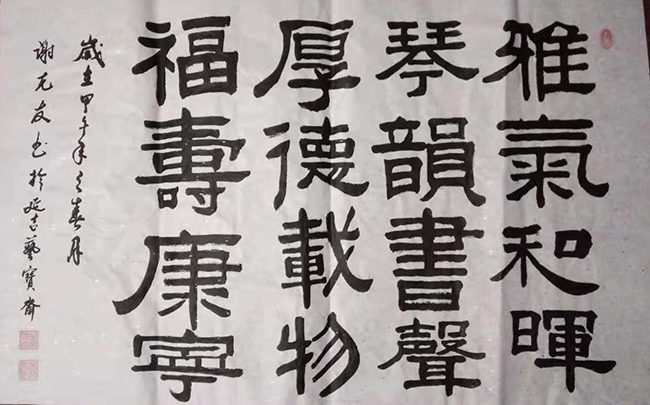 雅氣和暉
琴韻書聲
厚德載物
福壽康寧
歲在甲午年之春月
謝尤友书於延吉藝寶齋